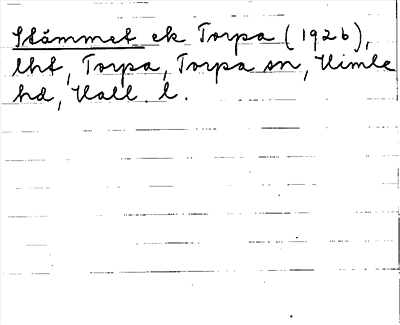 Stämmet ek Torpa (1926),
lht, Torpa, Torpa sn, Himle
hd, Hall. l.